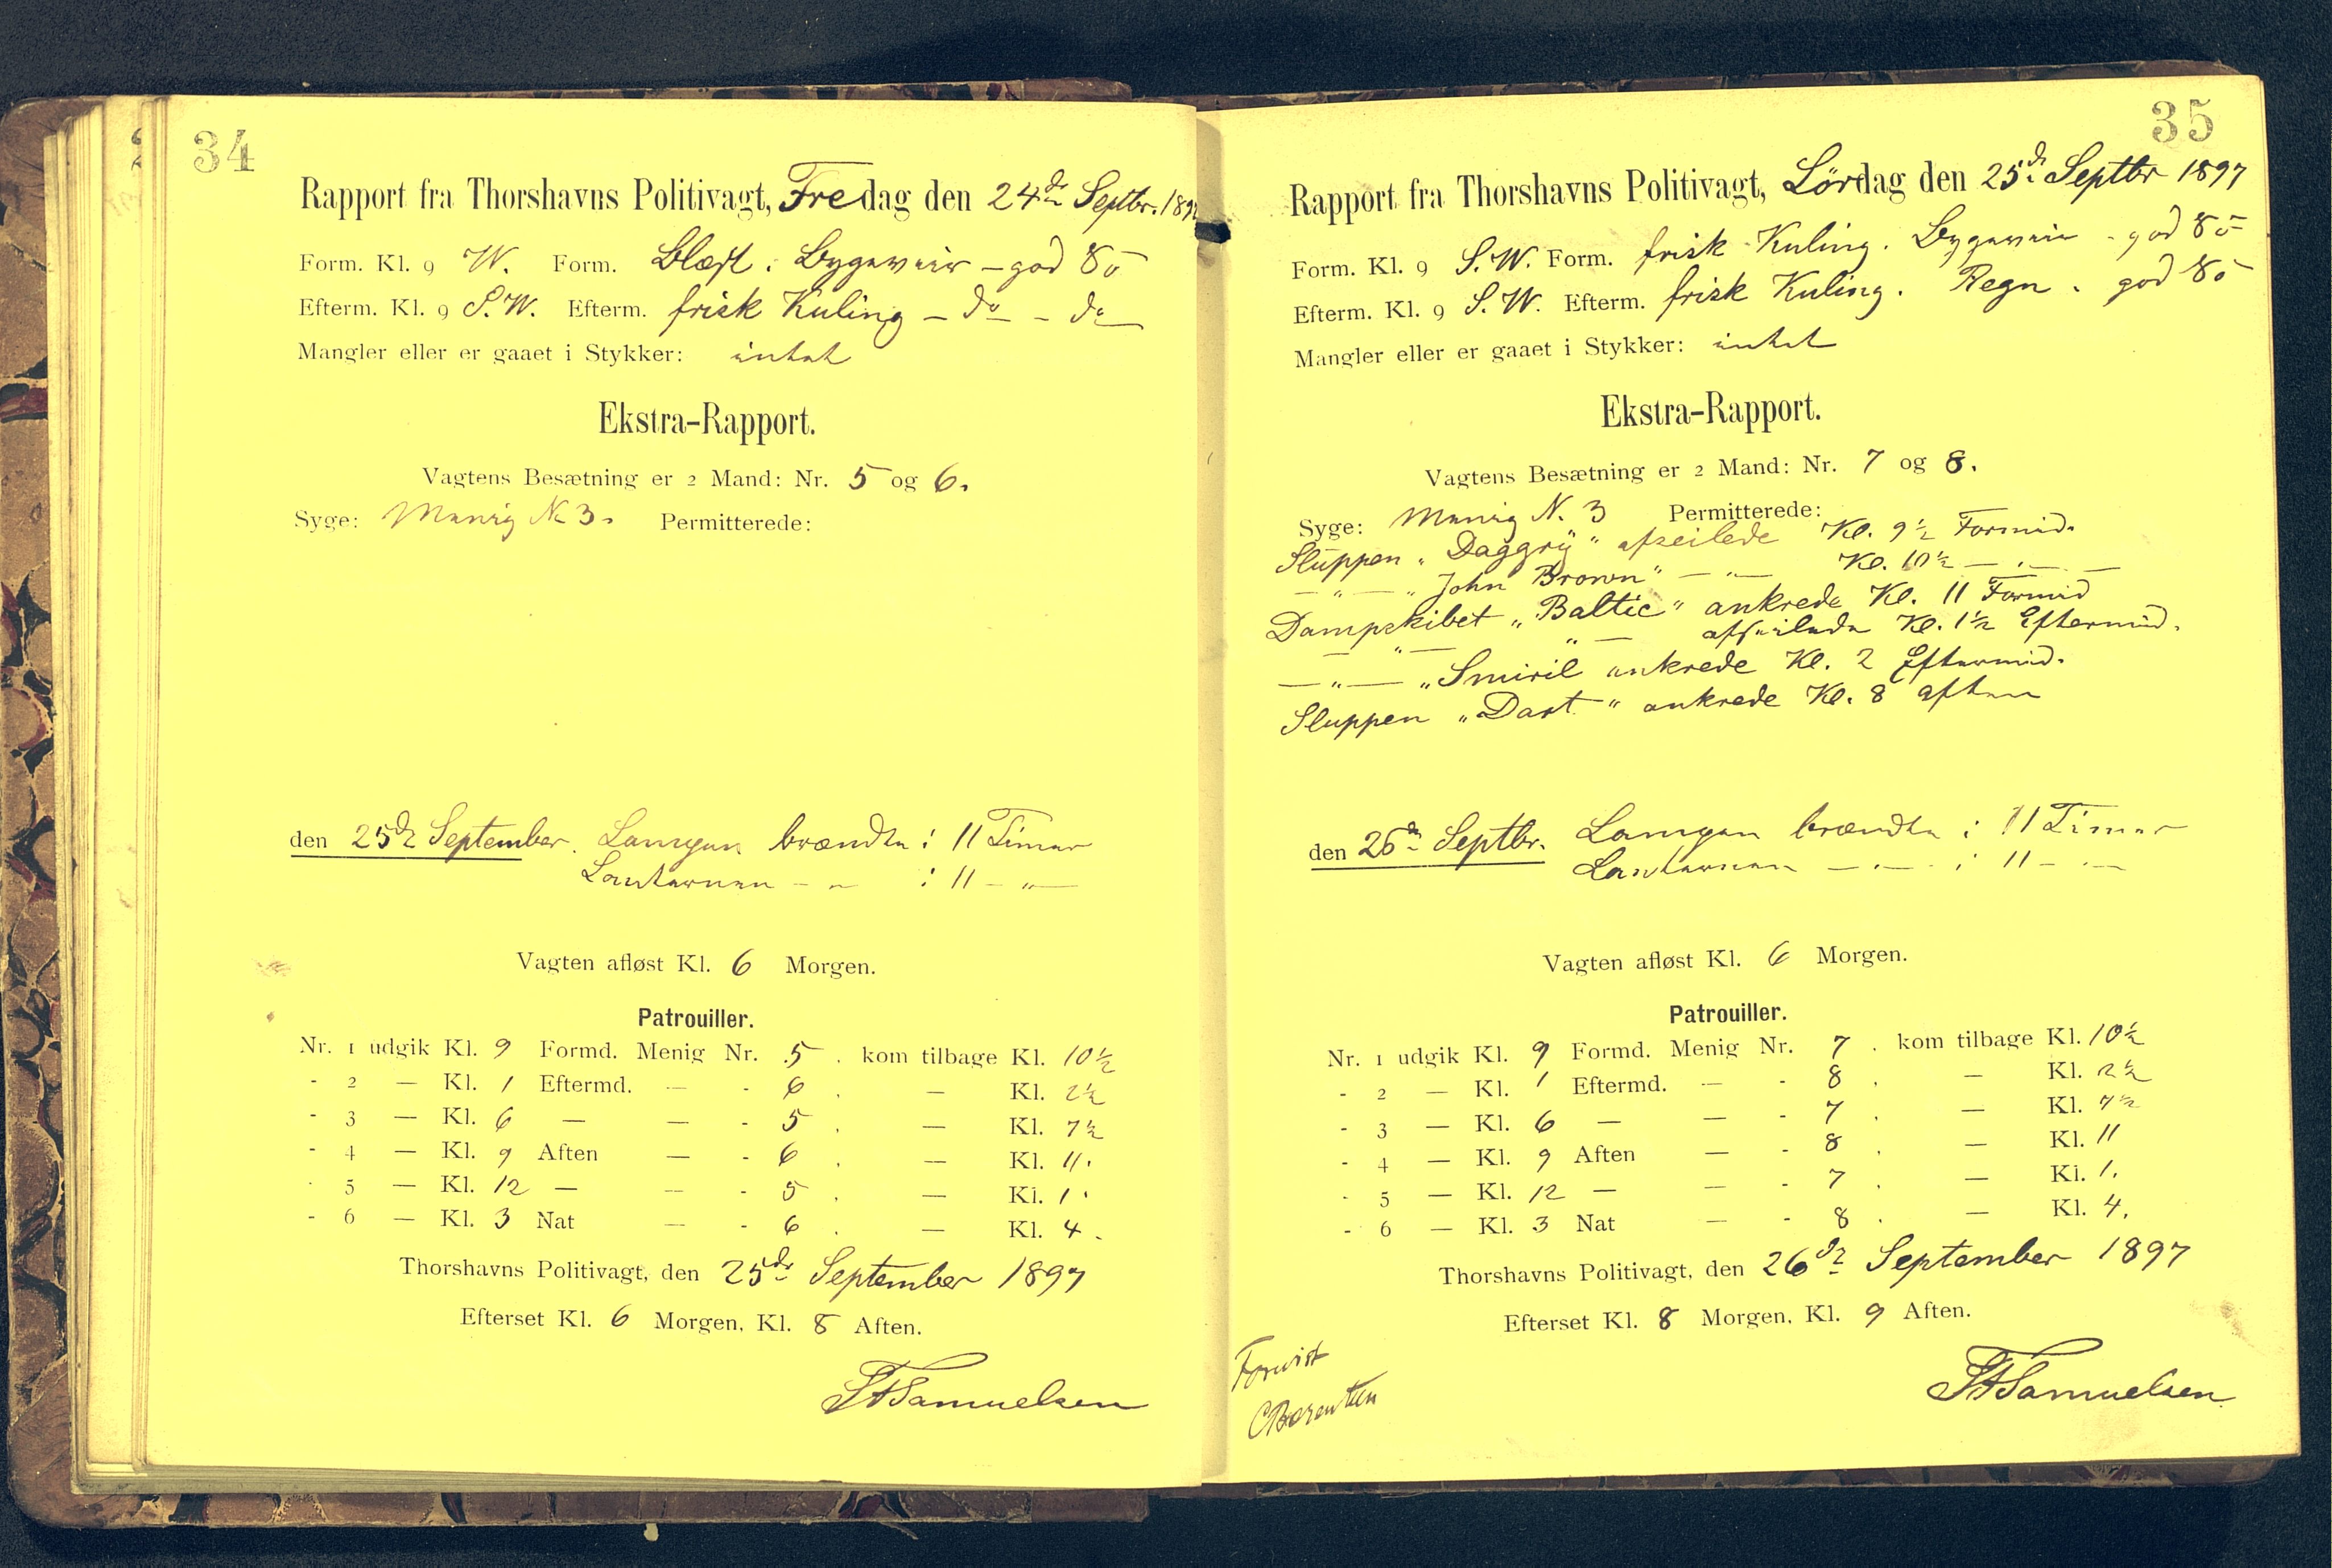 34
Rapport fra Thorshavns Politivagt, Fredag den 24de Septbr. 189
Form. Kl. 9 W. Form. Blæst. Bygeveir – god Sö
Efterm. Kl. 9 S.W. Efterm. frisk Kuling – do – do
Mangler eller er gaaet i Stykker: intet
Ekstra-Rapport.
Vagtens Besætning er 2 Mand: Nr. 5 og 6.
Syge: Menig N. 3. Permitterede:
den 25de September. Lampen brændte: 11 Timer
Lanternen – „ – : 11 – „ –
Vagten afløst Kl. 6 Morgen.
Patrouiller.
Nr. 1 udgik Kl. 9 Formd. Menig Nr. 5. kom tilbage Kl. 10½
- 2 — Kl. 1 Eftermd. — - 6. — Kl. 2½
- 3 — Kl. 6 — — - 5. — Kl. 7½
- 4 — Kl. 9 Aften — - 6. — Kl. 11.
- 5 — Kl. 12 — — - 5. — Kl. 1.
- 6 — Kl. 3 Nat — - 6. — Kl. 4.
Thorshavns Politivagt, den 25de September 1897
Efterset Kl. 6 Morgen, Kl. 8 Aften.
Samuelsen
35
Rapport fra Thorshavns Politivagt, Lördag den 25de Septbr 1897
Form. Kl. 9 S.W. Form. frisk Kuling. Bygeveir - god Sö
Efterm. Kl. 9 S.W. Efterm. frisk Kuling. Regn. god Sö
Mangler eller er gaaet i Stykker: intet
Ekstra-Rapport.
Vagtens Besætning er 2 Mand: Nr. 7 og 8.
Syge: Menig N. 3 Permitterede:
Sluppen „Daggry“ afseilede Kl. 9½ Formid.
— „ — „John Brown“ — „ — Kl. 10½ — „ —
Dampskibet „Baltic“ ankrede Kl. 11 Formid
— „ — „ — afseilede Kl. 1½ Eftermid.
— „ — „Smiril ankrede Kl. 2 Eftermid.
Sluppen „Dart“ ankrede Kl. 8 aften
den 26de Septbr. Lampen brændte: 11 Timer
Lanternen — „ — : 11 – „ –
Vagten afløst Kl. 6 Morgen.
Patrouiller.
Nr. 1 udgik Kl. 9 Formd. Menig Nr. 7. kom tilbage Kl. 10½
- 2 — Kl. 1 Eftermd. — - 8. — Kl. 2½
- 3 — Kl. 6 — — - 7. — Kl. 7½
- 4 — Kl. 9 Aften — - 8. — Kl. 11
- 5 — Kl. 12 — — - 7. — Kl. 1.
- 6 — Kl. 3 Nat — - 8. — Kl. 4.
Thorshavns Politivagt, den 26de September 1897
Efterset Kl. 8 Morgen, Kl. 9 Aften.
Forevist
CBærentsen
Samuelsen